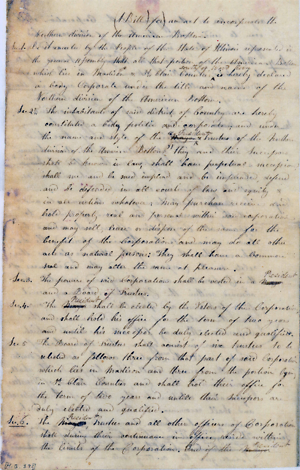 (A Bill) for an act to incorporate the
Northern division of the American Bottom.
Sec. 1. Be it enacted by the People of the State of Illinois represented in
the general assembly, That all that portion of the American Bottom
which lies in Madison & St Clair Counties is hereby declared
a body Corporate under the title and name of the
Northern division of the American Bottom.
Sec. 2. The inhabitants of said district of Country are hereby
constituted a body politic and corporate by and under
the name and style of the President & Trustees of the Northern
division of the American Bottom. They and their successors
shall be known in law, shall have perpetual succession
shall sue and be sued implead and be impleaded defend
and be defended in all courts of law and equity
in all actions whatever; may purchase receive and
hold property real and personal within said corporation
and may sell lease or dispose of the same for the
benefit of the Corporation and may do all other
acts as natural persons; They shall have a Common
seal and may alter the same at pleasure.
Sec. 3. The powers of said corporation shall be vested in a President
and a board of Trustees.
Sec. 4. The President shall be elected by the Voters of the Corporation
and shall hold his office for the term of two years
and until his successor be duly elected and qualified.
Sec. 5 The Board of Trustees shall consist of six Trustees to be
elected as follows three from that part of said Corporation
which lies in Madison and three from the portion lying
in St Clair Counties and shall hold their office for
the term of two years and until their successors are
duly elected and qualified.
Sec. 6. The President Trustees and all other officers of Corporation
shall during their continuance in office reside within
the limits of the Corporation. And if the President